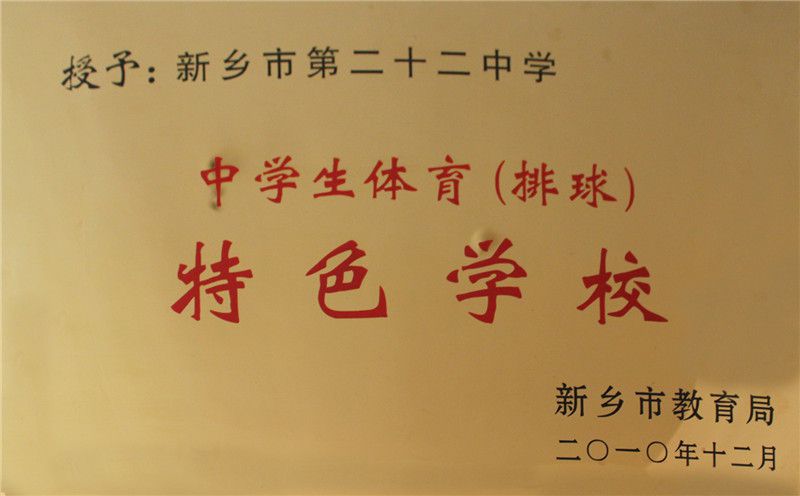 授予：新乡市第二十二中学
中学生体育（排球）
特色学校
新乡市教育局
二〇一〇年十二月